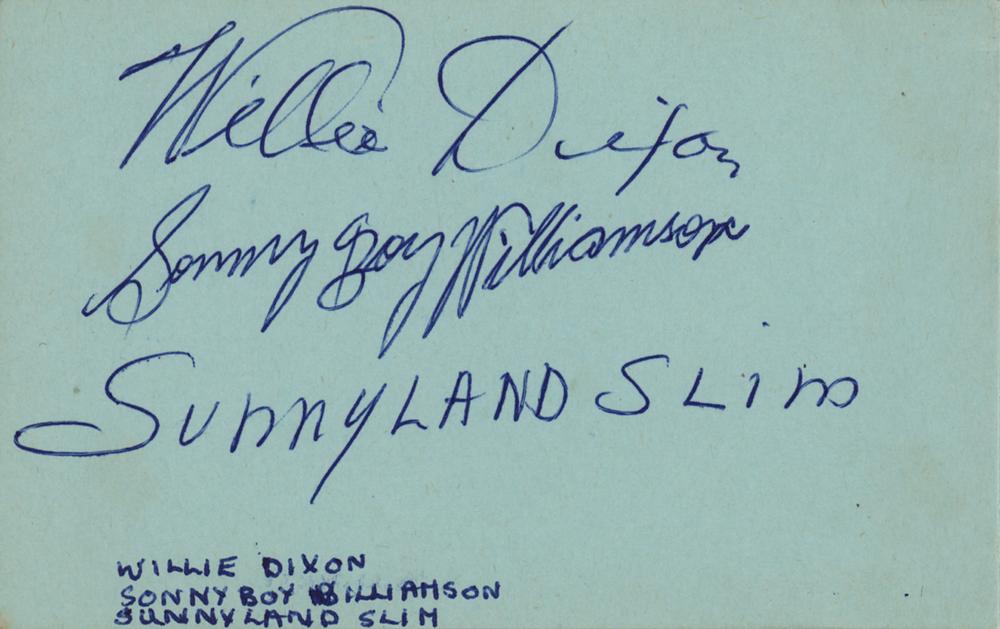 Willie Dixon
Sonny Boy Williamson
SunnyLAND SLim
WILLIE DIXON
SONNY BOY WILLIAMSON
SUNNYLAND SLIM